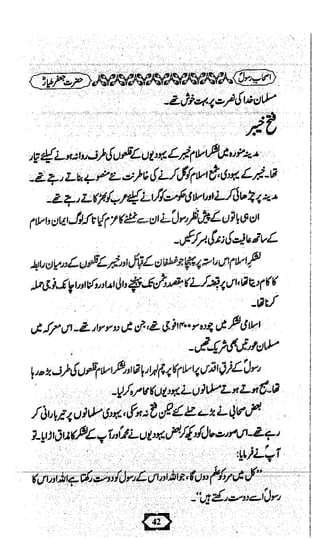 اصحاب رسولؐ
حضرت جعفر طیارؓ
مسلمان خدا کی نصرت پر بہت خوش تھے۔
فتح خیبر
مدینہ منورہ میں لشکر اسلام خیبر کے یہودیوں کے قلعوں کی طرف روانہ ہونے کیلئے تیار
تھا۔ خیبر کے یہودی، شمع اسلام کو گل کرنے کی خاطر نت نئے منصوبے بناتے رہتے تھے۔
مدینہ پر چڑھائی کرنے اور اسلامی حکومت کو گرانے کیلئے عرب کو بھڑکاتے رہتے تھے۔
ان ہی باتوں کے پیش نظر رسولؐ نے ان سے نمٹنے کا عزم کیا تاکہ لوگ ایمان و اسلام
کے ساتھ عافیت کی زندگی بسر کر سکیں۔
لشکر اسلام اس راستہ پر پہنچا جو غطفان کے قبائل اور خیبر کے قلعوں کے درمیان رابطہ
کا کام دیتا تھا، اس پر قبضہ کرنے کا مقصد دشمن تک پہنچنے والی امداد روکنا اور اچانک فوجی حملہ
کرنا تھا۔
اسلامی لشکر میں چودہ سو ۱۴۰۰ فوجی تھے، جن میں دو سو سوار تھے۔ اس معرکہ میں
مسلمان عورتیں بھی شریک تھیں۔
رسولؐ کے فرق اقدس پر اسلام کا پرچم لہرا رہا تھا اور لشکر اسلام قلعوں کی طرف بڑھ رہا
تھا۔ صبح ہوتے ہوتے مسلمانوں نے یہودیوں کا محاصرہ کر لیا۔
بعض صحابی نے بڑے حملے کئے لیکن فتح نہ ہو سکی، یہودی مسلمانوں پر تیر بارانی کر
رہے تھے۔ اس صورت حال کو دیکھ کر بعض یہودیوں نے محمدؐ اور آپ کے لشکر کا مذاق اڑایا۔ تو
آپؐ نے فرمایا:
"کل میں مرد کو علم دوں گا، جو اللہ اور اس کے رسول کو دوست رکھتا ہے اللہ اور اس کا
رسول اسے دوست رکھتے ہیں"۔
42